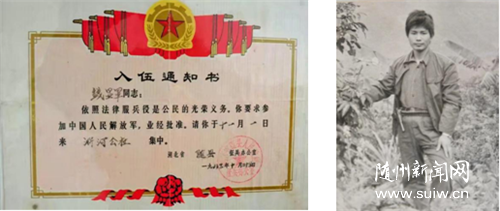 入伍通知书
同志：
依照法律服兵役是公民的光荣义务。你要求参
加中国人民解放军，业经批准。请你于十一月一日
来 集中。
湖北省 随县 征兵办公室
随州新闻网
www.suiw.cn